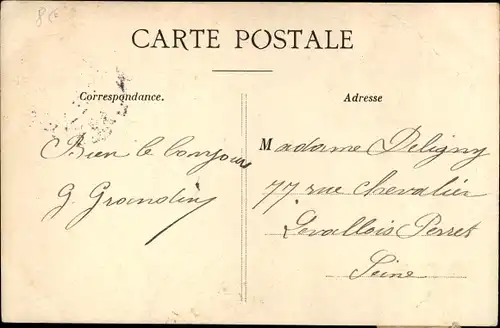 CARTE POSTALE
Correspondance.
Adresse
Bien le bonjour
G. Grandin
Madame Deligny
77 rue Chevalier
Levallois Perret
Seine